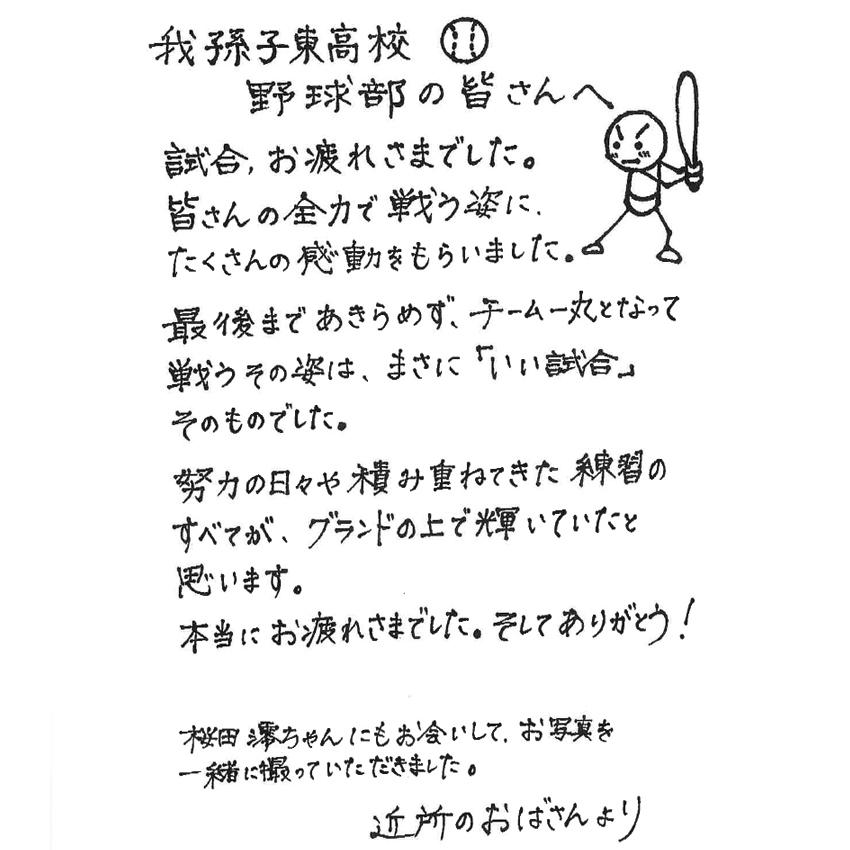 我孫子東高校
野球部の皆さんへ
試合、お疲れさまでした。
皆さんの全力で戦う姿に、
たくさんの感動をもらいました。
最後まであきらめず、チーム一丸となって
戦うその姿は、まさに「いい試合」
そのものでした。
努力の日々や積み重ねてきた練習の
すべてが、グランドの上で輝いていたと
思います。
本当にお疲れさまでした。そしてありがとう!
桜田澪ちゃんにもお会いして、お写真を
一緒に撮っていただきました。
近所のおばさんより